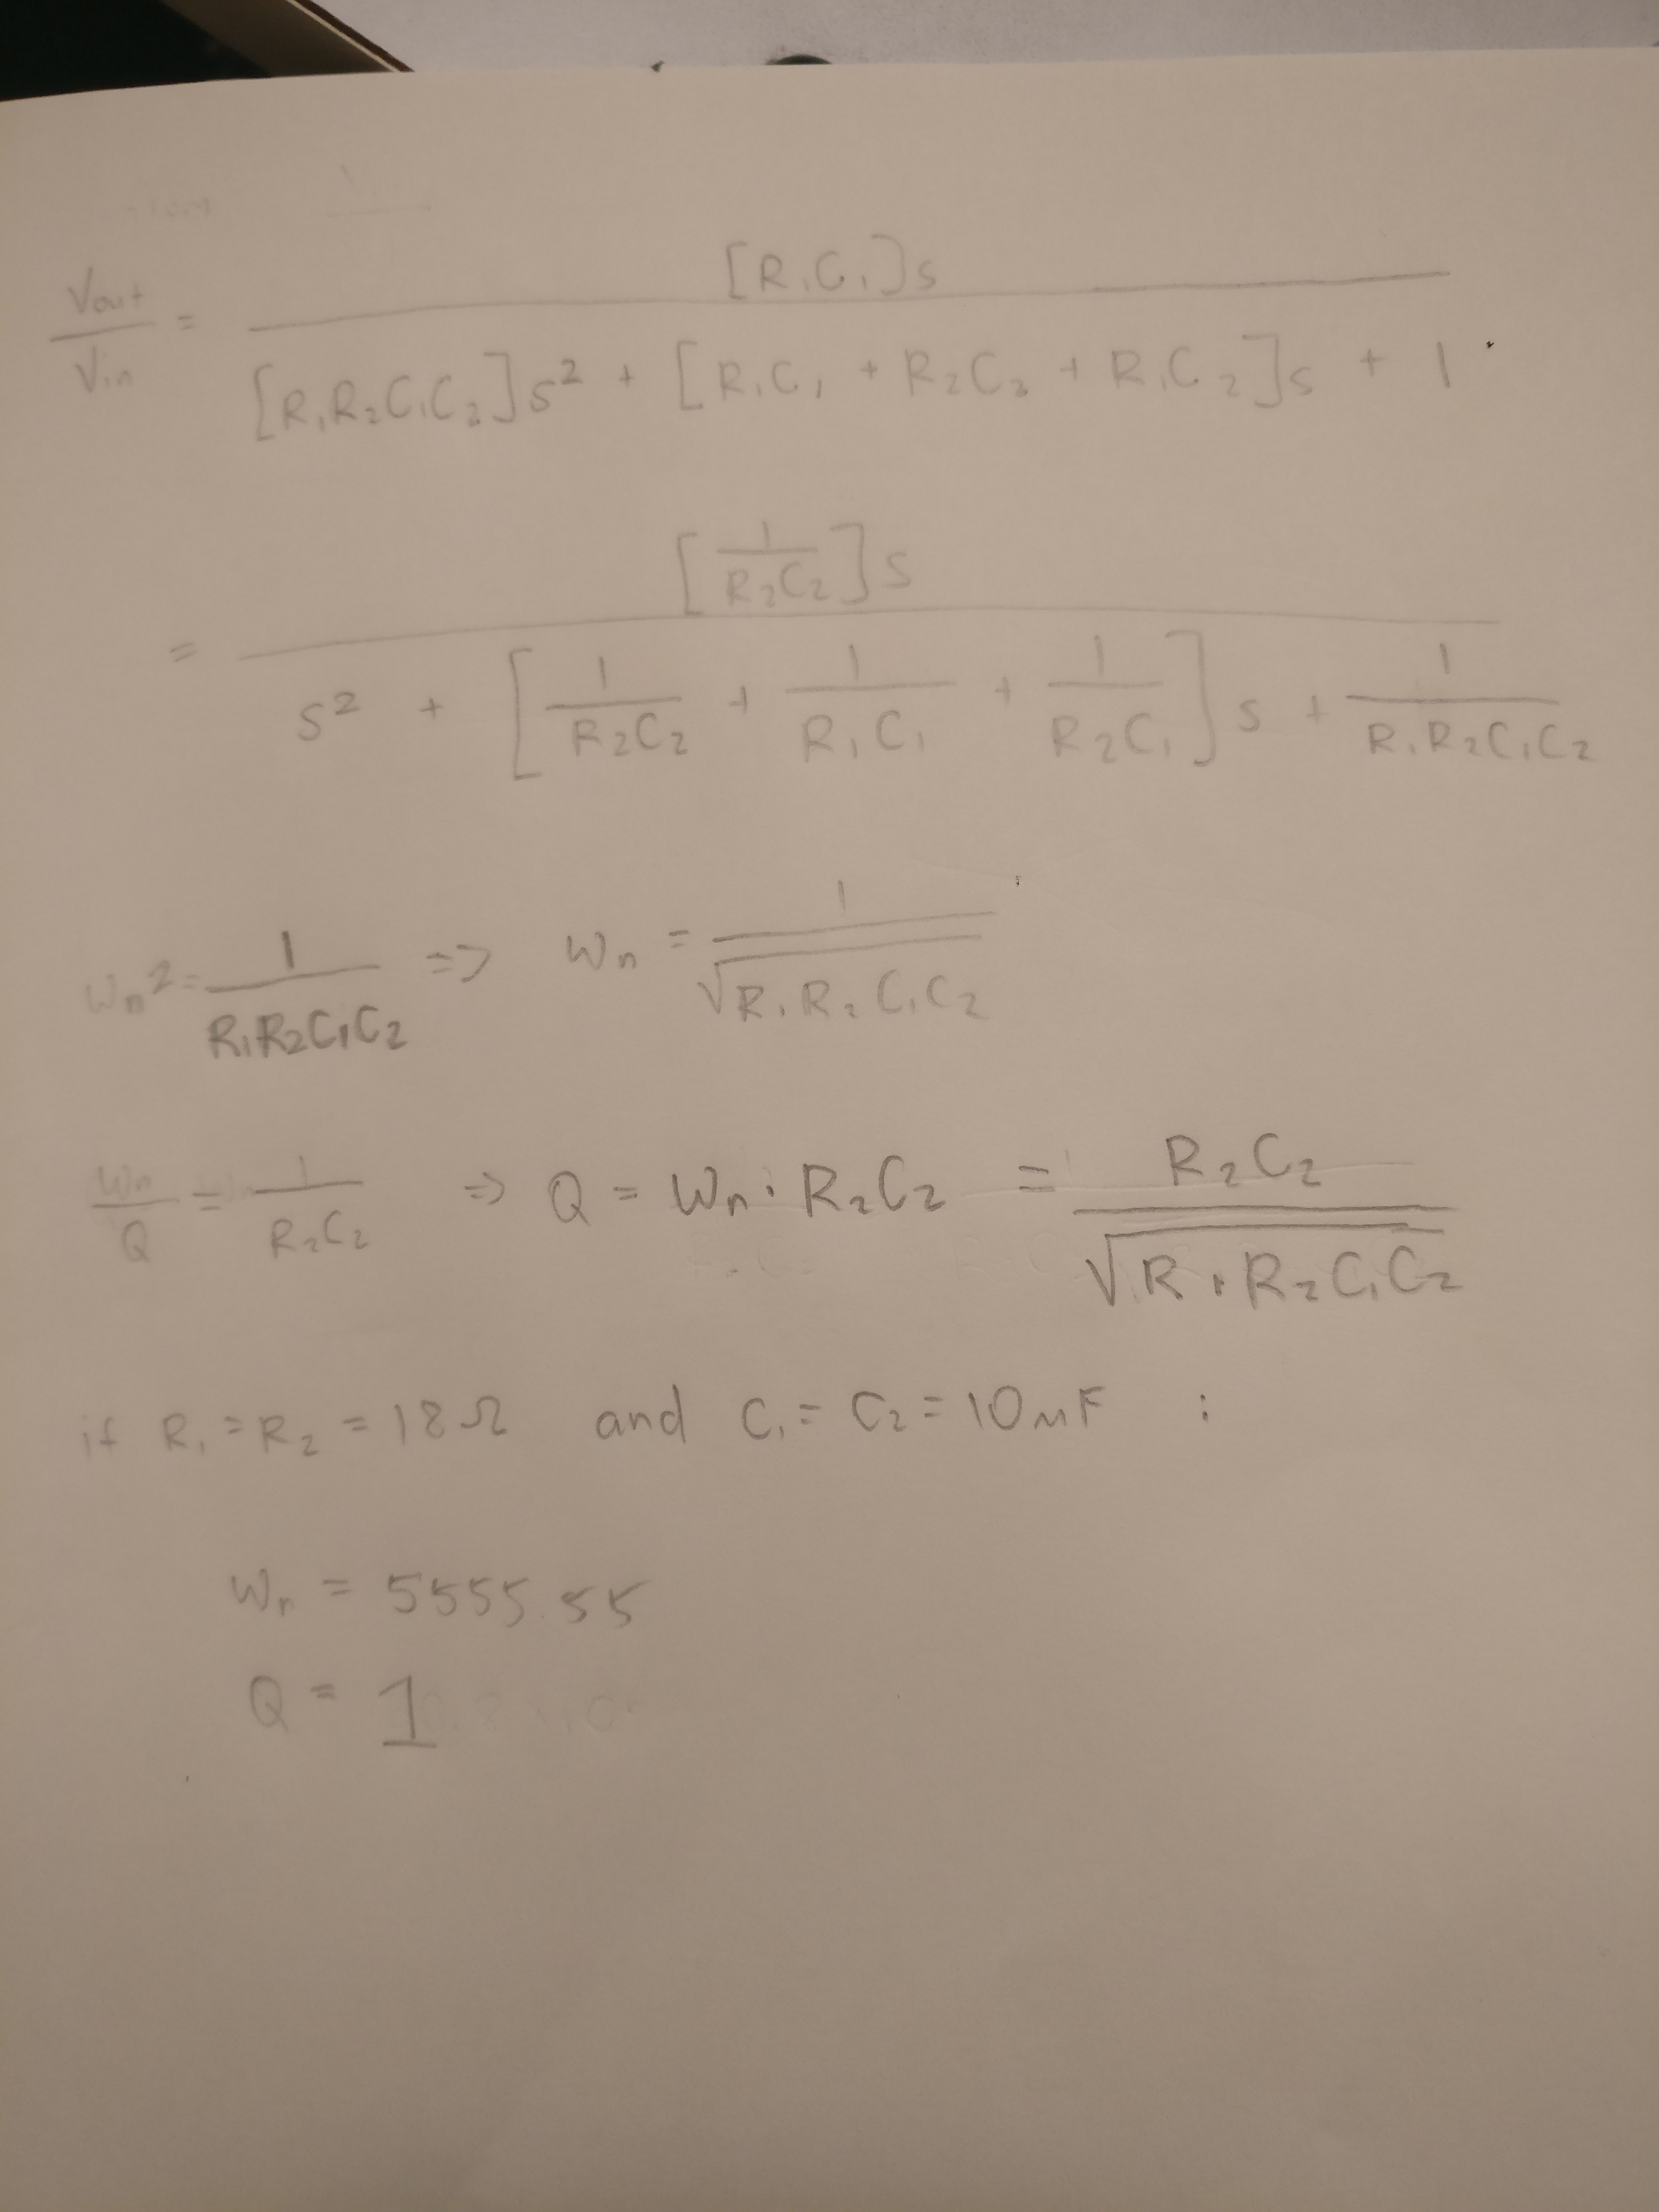 Vout/Vin = [R₁C₁]s / ([R₁R₂C₁C₂]s² + [R₁C₁ + R₂C₂ + R₁C₂]s + 1)
= [1/(R₂C₂)]s / (s² + [1/(R₂C₂) + 1/(R₁C₁) + 1/(R₂C₁)]s + 1/(R₁R₂C₁C₂))
Wn² = 1/(R₁R₂C₁C₂) => Wn = 1/√(R₁R₂C₁C₂)
Wn/Q = 1/(R₂C₂) => Q = Wn · R₂C₂ = R₂C₂/√(R₁R₂C₁C₂)
if R₁ = R₂ = 18Ω and C₁ = C₂ = 10μF :
Wn = 5555.55
Q = 1